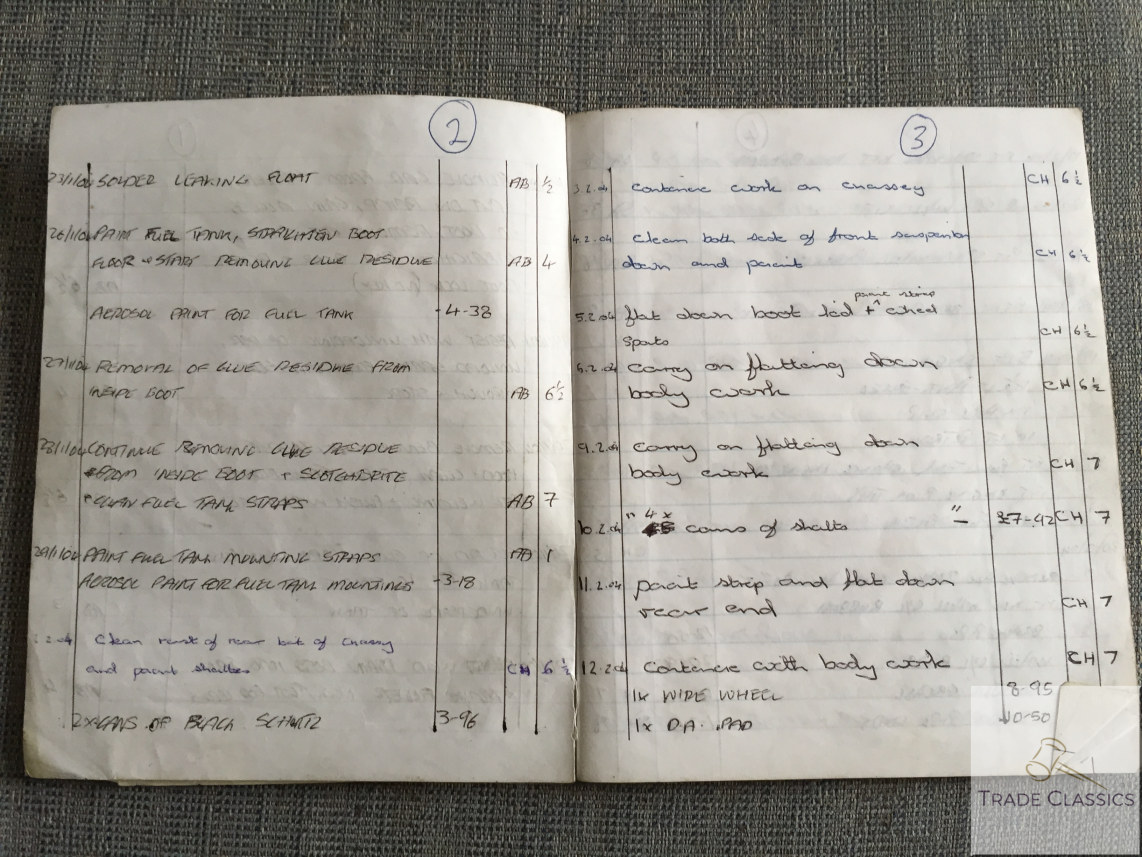 2
23/1/04 SOLDER LEAKING FLOAT AB ½
26/1/04 PAINT FUEL TANK, STRAIGHTEN BOOT
FLOOR + START REMOVING GLUE RESIDUE AB 4
AEROSOL PAINT FOR FUEL TANK -4-38
27/1/04 REMOVAL OF GLUE RESIDUE FROM
INSIDE BOOT AB 6½
28/1/04 CONTINUE REMOVING GLUE RESIDUE
FROM INSIDE BOOT + SCOTCHBRITE
+ CLEAN FUEL TANK STRAPS AB 7
29/1/04 PAINT FUEL TANK MOUNTING STRAPS AB 1
AEROSOL PAINT FOR FUEL TANK MOUNTINGS -3-18
2.04 Clean rest of rear but of chassy
and paint shultes CH 6½
2x CANS OF BLACK SCHUTZ 3-96
3
3.2.04 continue work on chassey CH 6½
4.2.04 clean both side of front suspention
down and paint CH 6½
paint strip
5.2.04 flat down boot lid + ^ wheel
spats CH 6½
6.2.04 carry on flatting down
body work CH 6½
9.2.04 carry on flatting down
body work CH 7
10.2.04 " 4x cans of shults " — £7-92 CH 7
11.2.04 paint strip and flat down
rear end CH 7
12.2.04 continue with body work CH 7
1x WIRE WHEEL 8-95
1x D.A. PAD 10-50
TRADE CLASSICS